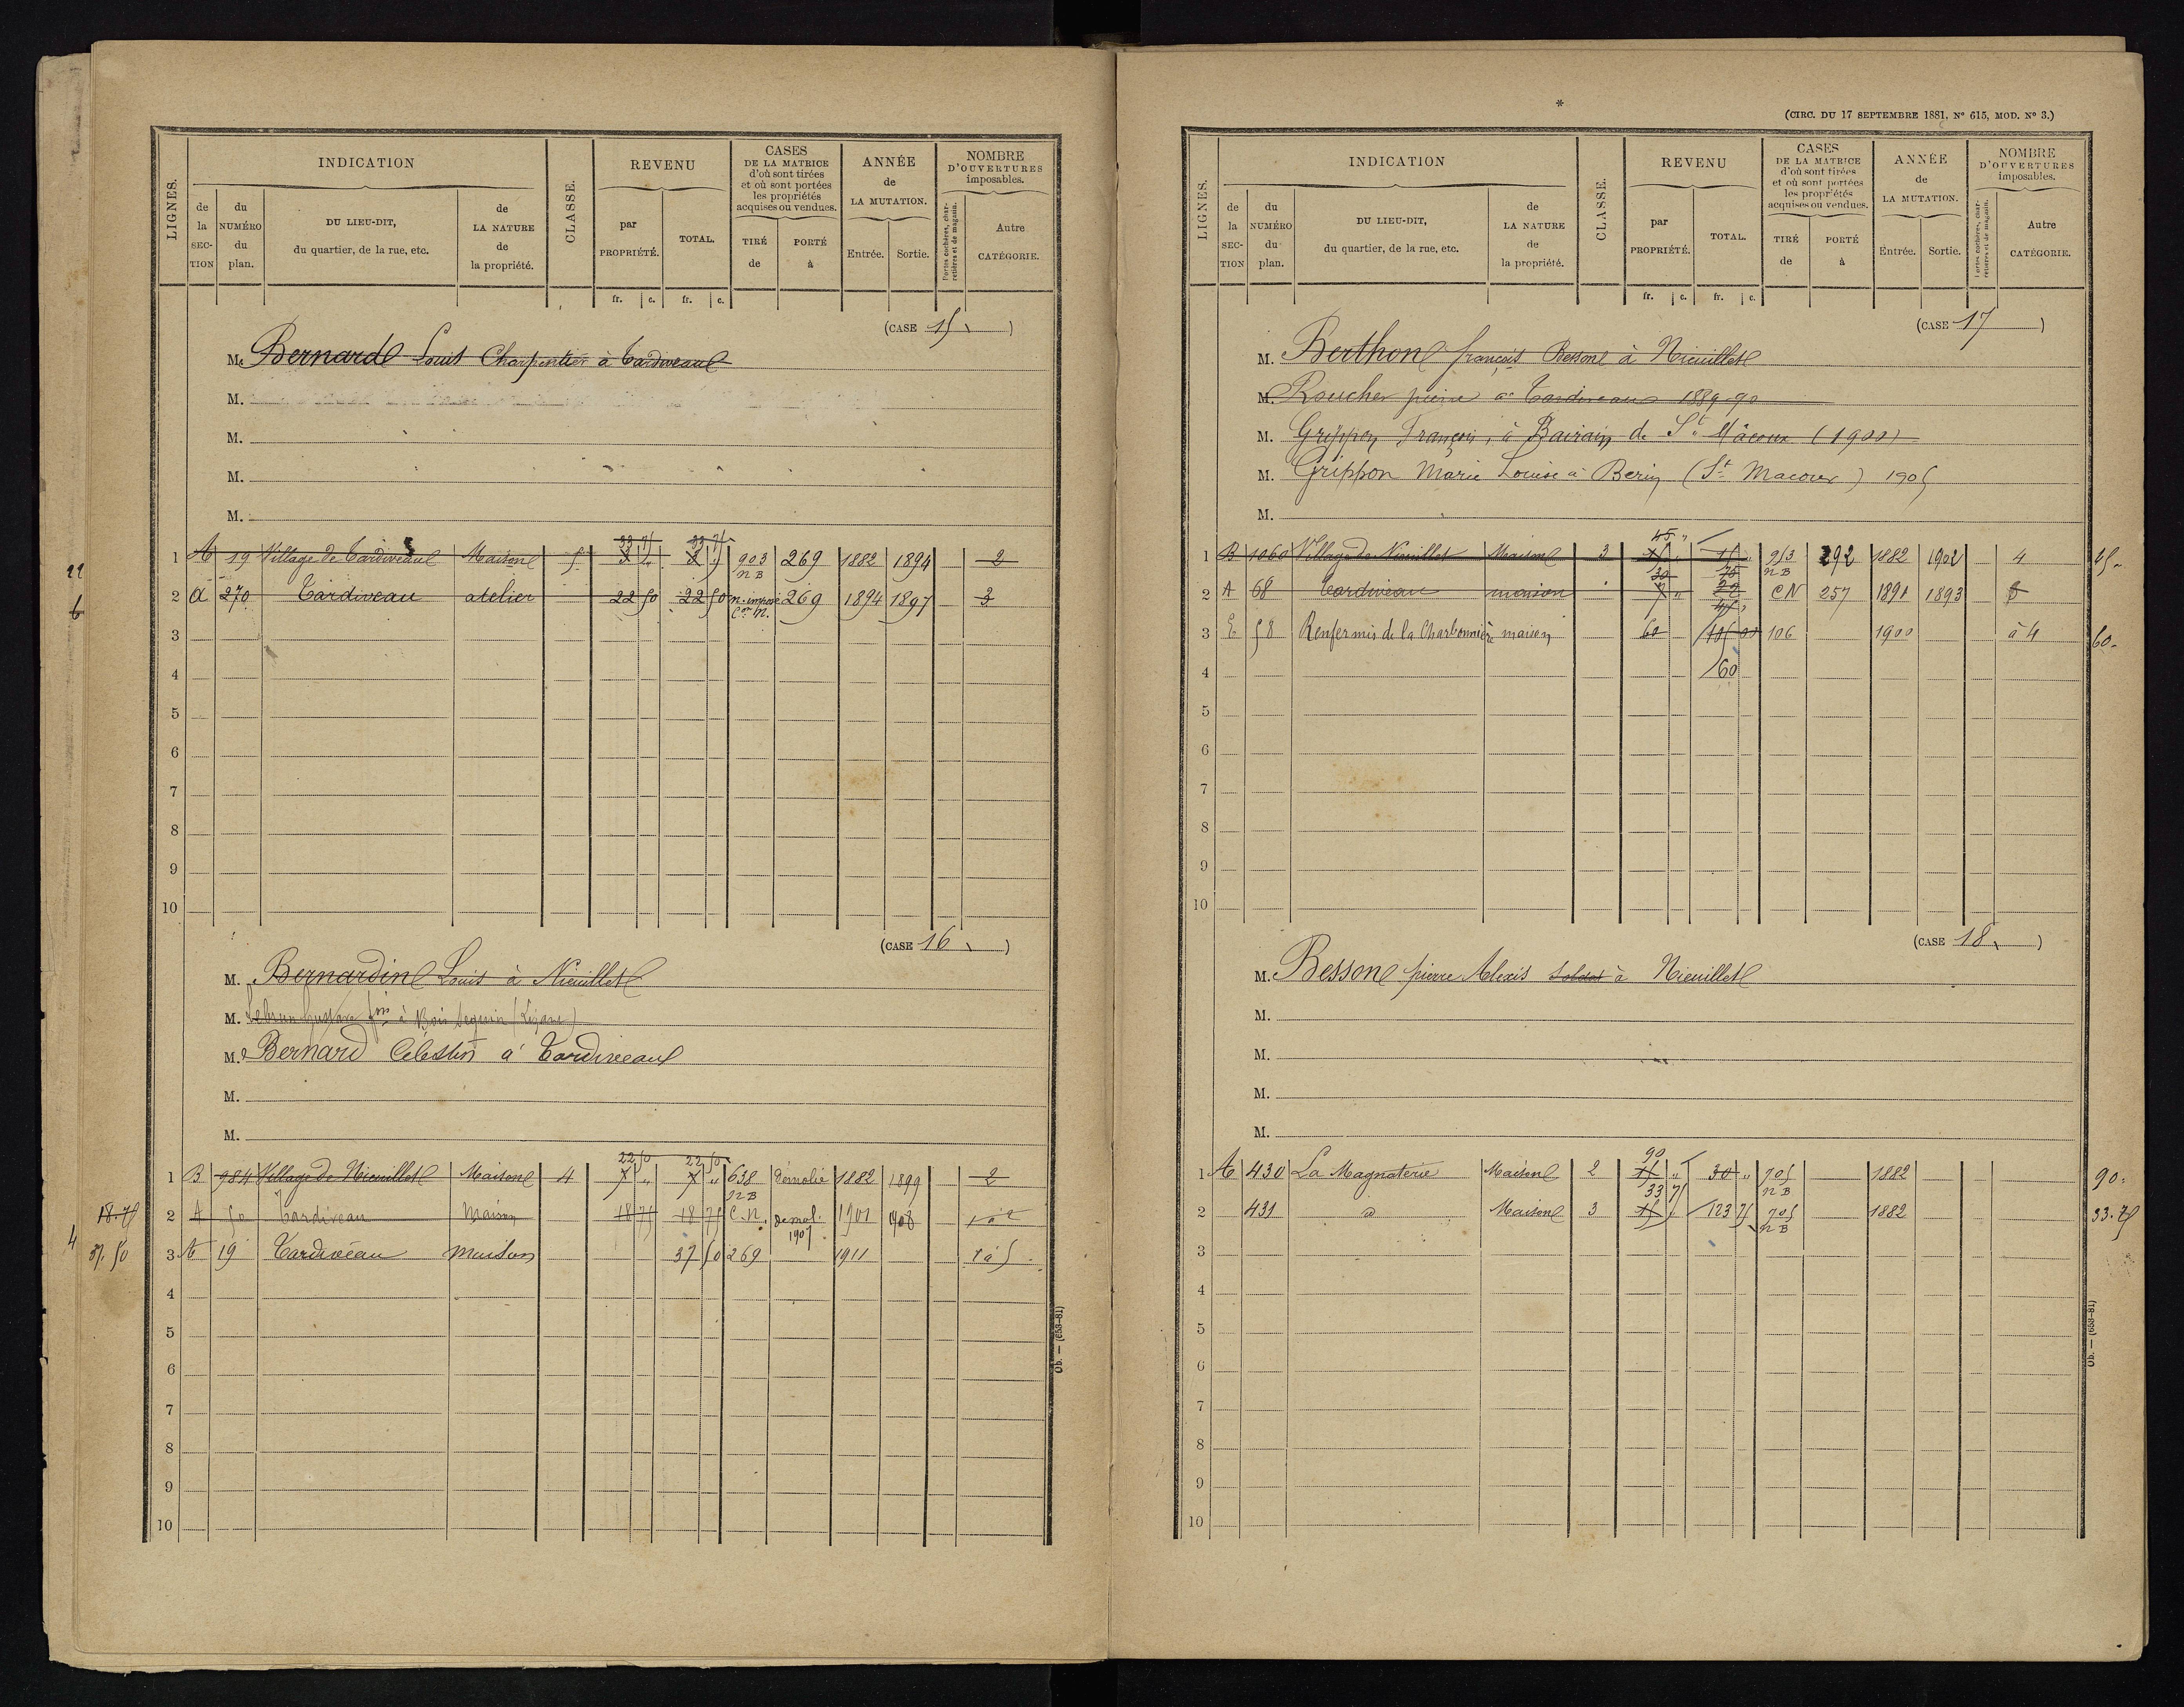 LIGNES.
INDICATION
de la SECTION
du NUMÉRO du plan.
DU LIEU-DIT, du quartier, de la rue, etc.
de LA NATURE de la propriété.
CLASSE.
REVENU
par PROPRIÉTÉ.
TOTAL.
fr. c. fr. c.
CASES DE LA MATRICE d'où sont tirées et où sont portées les propriétés acquises ou vendues.
TIRÉ de
PORTÉ à
ANNÉE de LA MUTATION.
Entrée. Sortie.
NOMBRE D'OUVERTURES imposables.
Portes cochères, charretières et de magasin.
Autre CATÉGORIE.
(CASE 15)
M. Bernard Louis Charpentier à Tardiveau
M.
M.
M.
M.
33 75 33 75
1 A 19 Village de Tardiveau Maison 5 903 NB 269 1882 1894 2
2 A 270 Tardiveau atelier 22 50 22 50 n. imposé 269 1894 1897 3
3
4
5
6
7
8
9
10
22
6
(CASE 16)
M. Bernardin Louis à Nieuillet
M. Lebrun Gustave à Bois Seguin
M. Bernard Célestin à Tardiveau
M.
M.
22 50 22 50
1 B 984 Village de Nieuillet Maison 4 7 " 7 " 638 NB Démolie 1882 1899 2
18.75 2 A 50 Tardiveau Maison 18 75 18 75 C.N. démol. 1907 1901 1908
4 37.50 3 A 19 Tardiveau maison 37 50 269 1911 1 à 5
4
5
6
7
8
9
10
Ob. — (653-81)
*
(CIRC. DU 17 SEPTEMBRE 1881, N° 615, MOD. N° 3.)
LIGNES.
INDICATION
de la SECTION
du NUMÉRO du plan.
DU LIEU-DIT, du quartier, de la rue, etc.
de LA NATURE de la propriété.
CLASSE.
REVENU
par PROPRIÉTÉ.
TOTAL.
fr. c. fr. c.
CASES DE LA MATRICE d'où sont tirées et où sont portées les propriétés acquises ou vendues.
TIRÉ de
PORTÉ à
ANNÉE de LA MUTATION.
Entrée. Sortie.
NOMBRE D'OUVERTURES imposables.
Portes cochères, charretières et de magasin.
Autre CATÉGORIE.
(CASE 17)
M. Berthon françois Besson à Nieuillet
M. Roucher pierre à Tardiveau 1889-90
M. Grippon François, à de St Mâcoux (1900)
M. Grippon Marie Louise à (St Macoux) 1905
M.
45 "
1 B 1060 Vge de Nieuillet Maison 3 15 " 15 " 953 NB 292 1882 1902 4 45.
30 75
2 A 68 Tardiveau maison 7 " 22 CN 257 1891 1893
45
3 E 58 Renfermis de la Charbonnière maison 60 105 00 106 1900 à 4 60.
4 60
5
6
7
8
9
10
(CASE 18)
M. Besson pierre Alexis soldat à Nieuillet
M.
M.
M.
M.
90
1 A 430 La Magnaterie Maison 2 15 " 30 " 705 NB 1882 90.
33 75
2 431 id Maison 3 15 " 123 75 705 NB 1882 33.75
3
4
5
6
7
8
9
10
Ob. — (653-81)